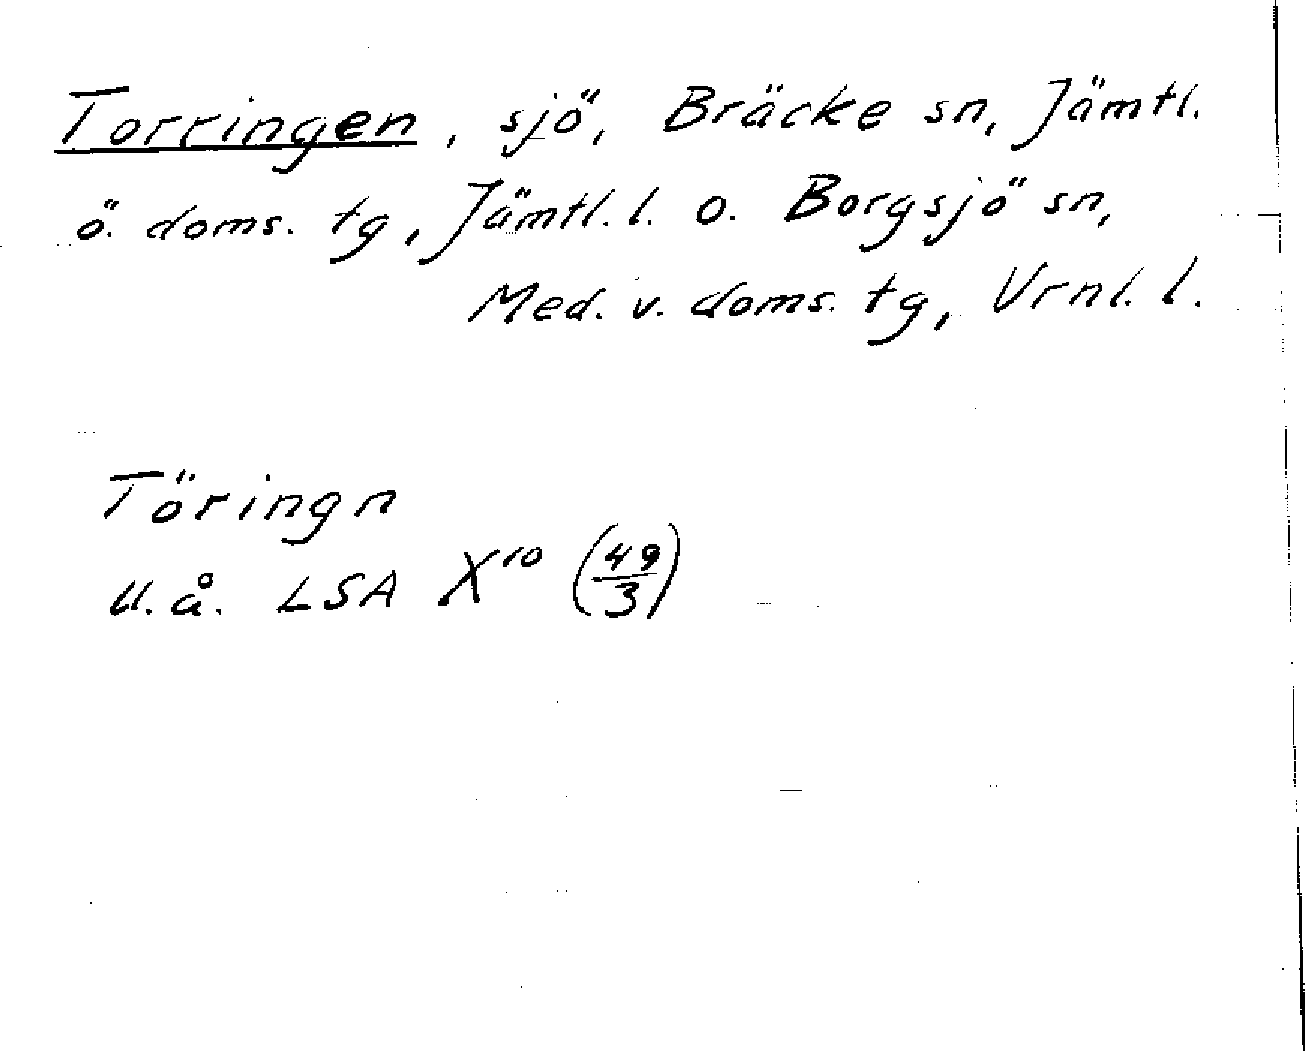 Torringen, sjö, Bräcke sn, Jämtl.
ö. doms. tg, Jämtl. l. o. Borgsjö sn,
Med. v. doms. tg, Vrnl. l.
Töringn
U.å. LSA X¹⁰ (49/3)